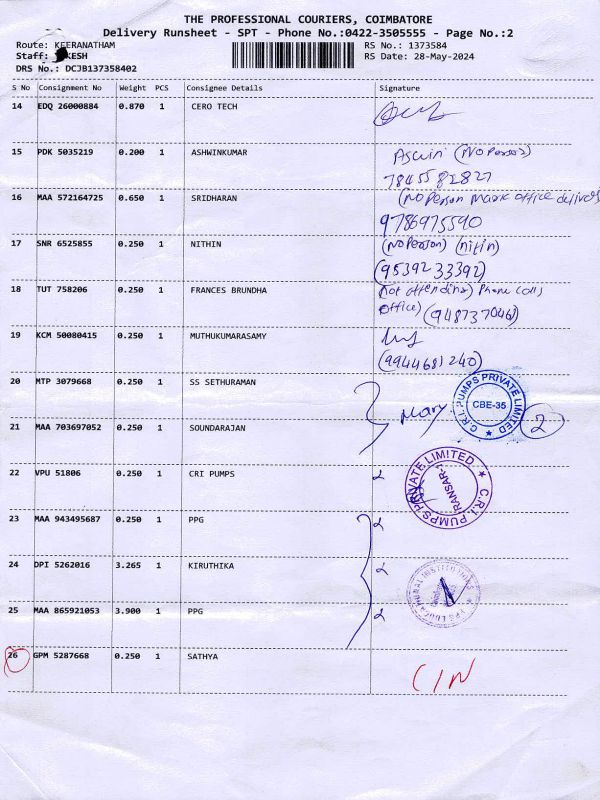 THE PROFESSIONAL COURIERS, COIMBATORE
Delivery Runsheet - SPT - Phone No.:0422-3505555 - Page No.:2
Route: KEERANATHAM
RS No.: 1373584
Staff: KESH
RS Date: 28-May-2024
DRS No.: DCJB137358402
S No Consignment No Weight PCS Consignee Details Signature
14 EDQ 26000884 0.870 1 CERO TECH
15 PDK 5035219 0.200 1 ASHWINKUMAR Aswin (No Person)
7845582827
16 MAA 572164725 0.650 1 SRIDHARAN (No Person office
9786975590
17 SNR 6525855 0.250 1 NITHIN (No Person) (nitin)
(9539233392)
18 TUT 758206 0.250 1 FRANCES BRUNDHA Not attending) Phone calls
office)
19 KCM 50080415 0.250 1 MUTHUKUMARASAMY
(9944681240)
20 MTP 3079668 0.250 1 SS SETHURAMAN
C.R.I. PUMPS PRIVATE LIMITED
CBE-35
Mary 2
21 MAA 703697052 0.250 1 SOUNDARAJAN
22 VPU 51806 0.250 1 CRI PUMPS
C.R.I. PUMPS PRIVATE LIMITED
23 MAA 943495687 0.250 1 PPG
24 DPI 5262016 3.265 1 KIRUTHIKA
25 MAA 865921053 3.900 1 PPG
26 GPM 5287668 0.250 1 SATHYA CIN